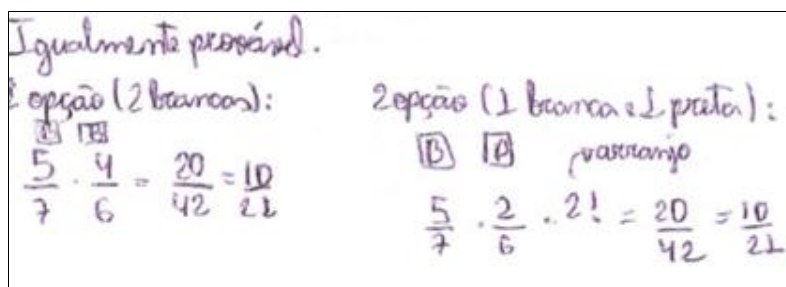 Igualmente provável.
1 opção (2 brancas):
B B
5/7 · 4/6 = 20/42 = 10/21
2 opção (1 branca e 1 preta):
B P arranjo
5/7 · 2/6 · 2! = 20/42 = 10/21